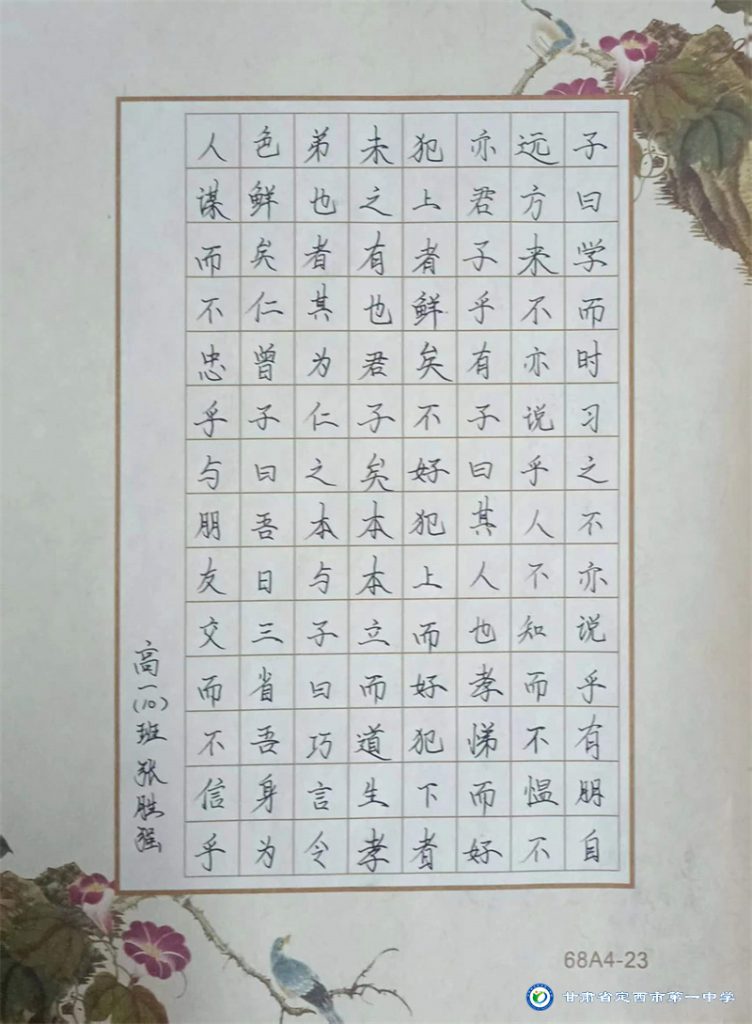 子曰学而时习之不亦说乎有朋自
远方来不亦说乎人不知而不愠不
亦君子乎有子曰其人也孝悌而好
犯上者鲜矣不好犯上而好犯下者
未之有也君子矣本本立而道生孝
弟也者其为仁之本与子曰巧言令
色鲜矣仁曾子曰吾日三省吾身为
人谋而不忠乎与朋友交而不信乎
高一(10)班 张胜强
68A4-23
甘肃省定西市第一中学